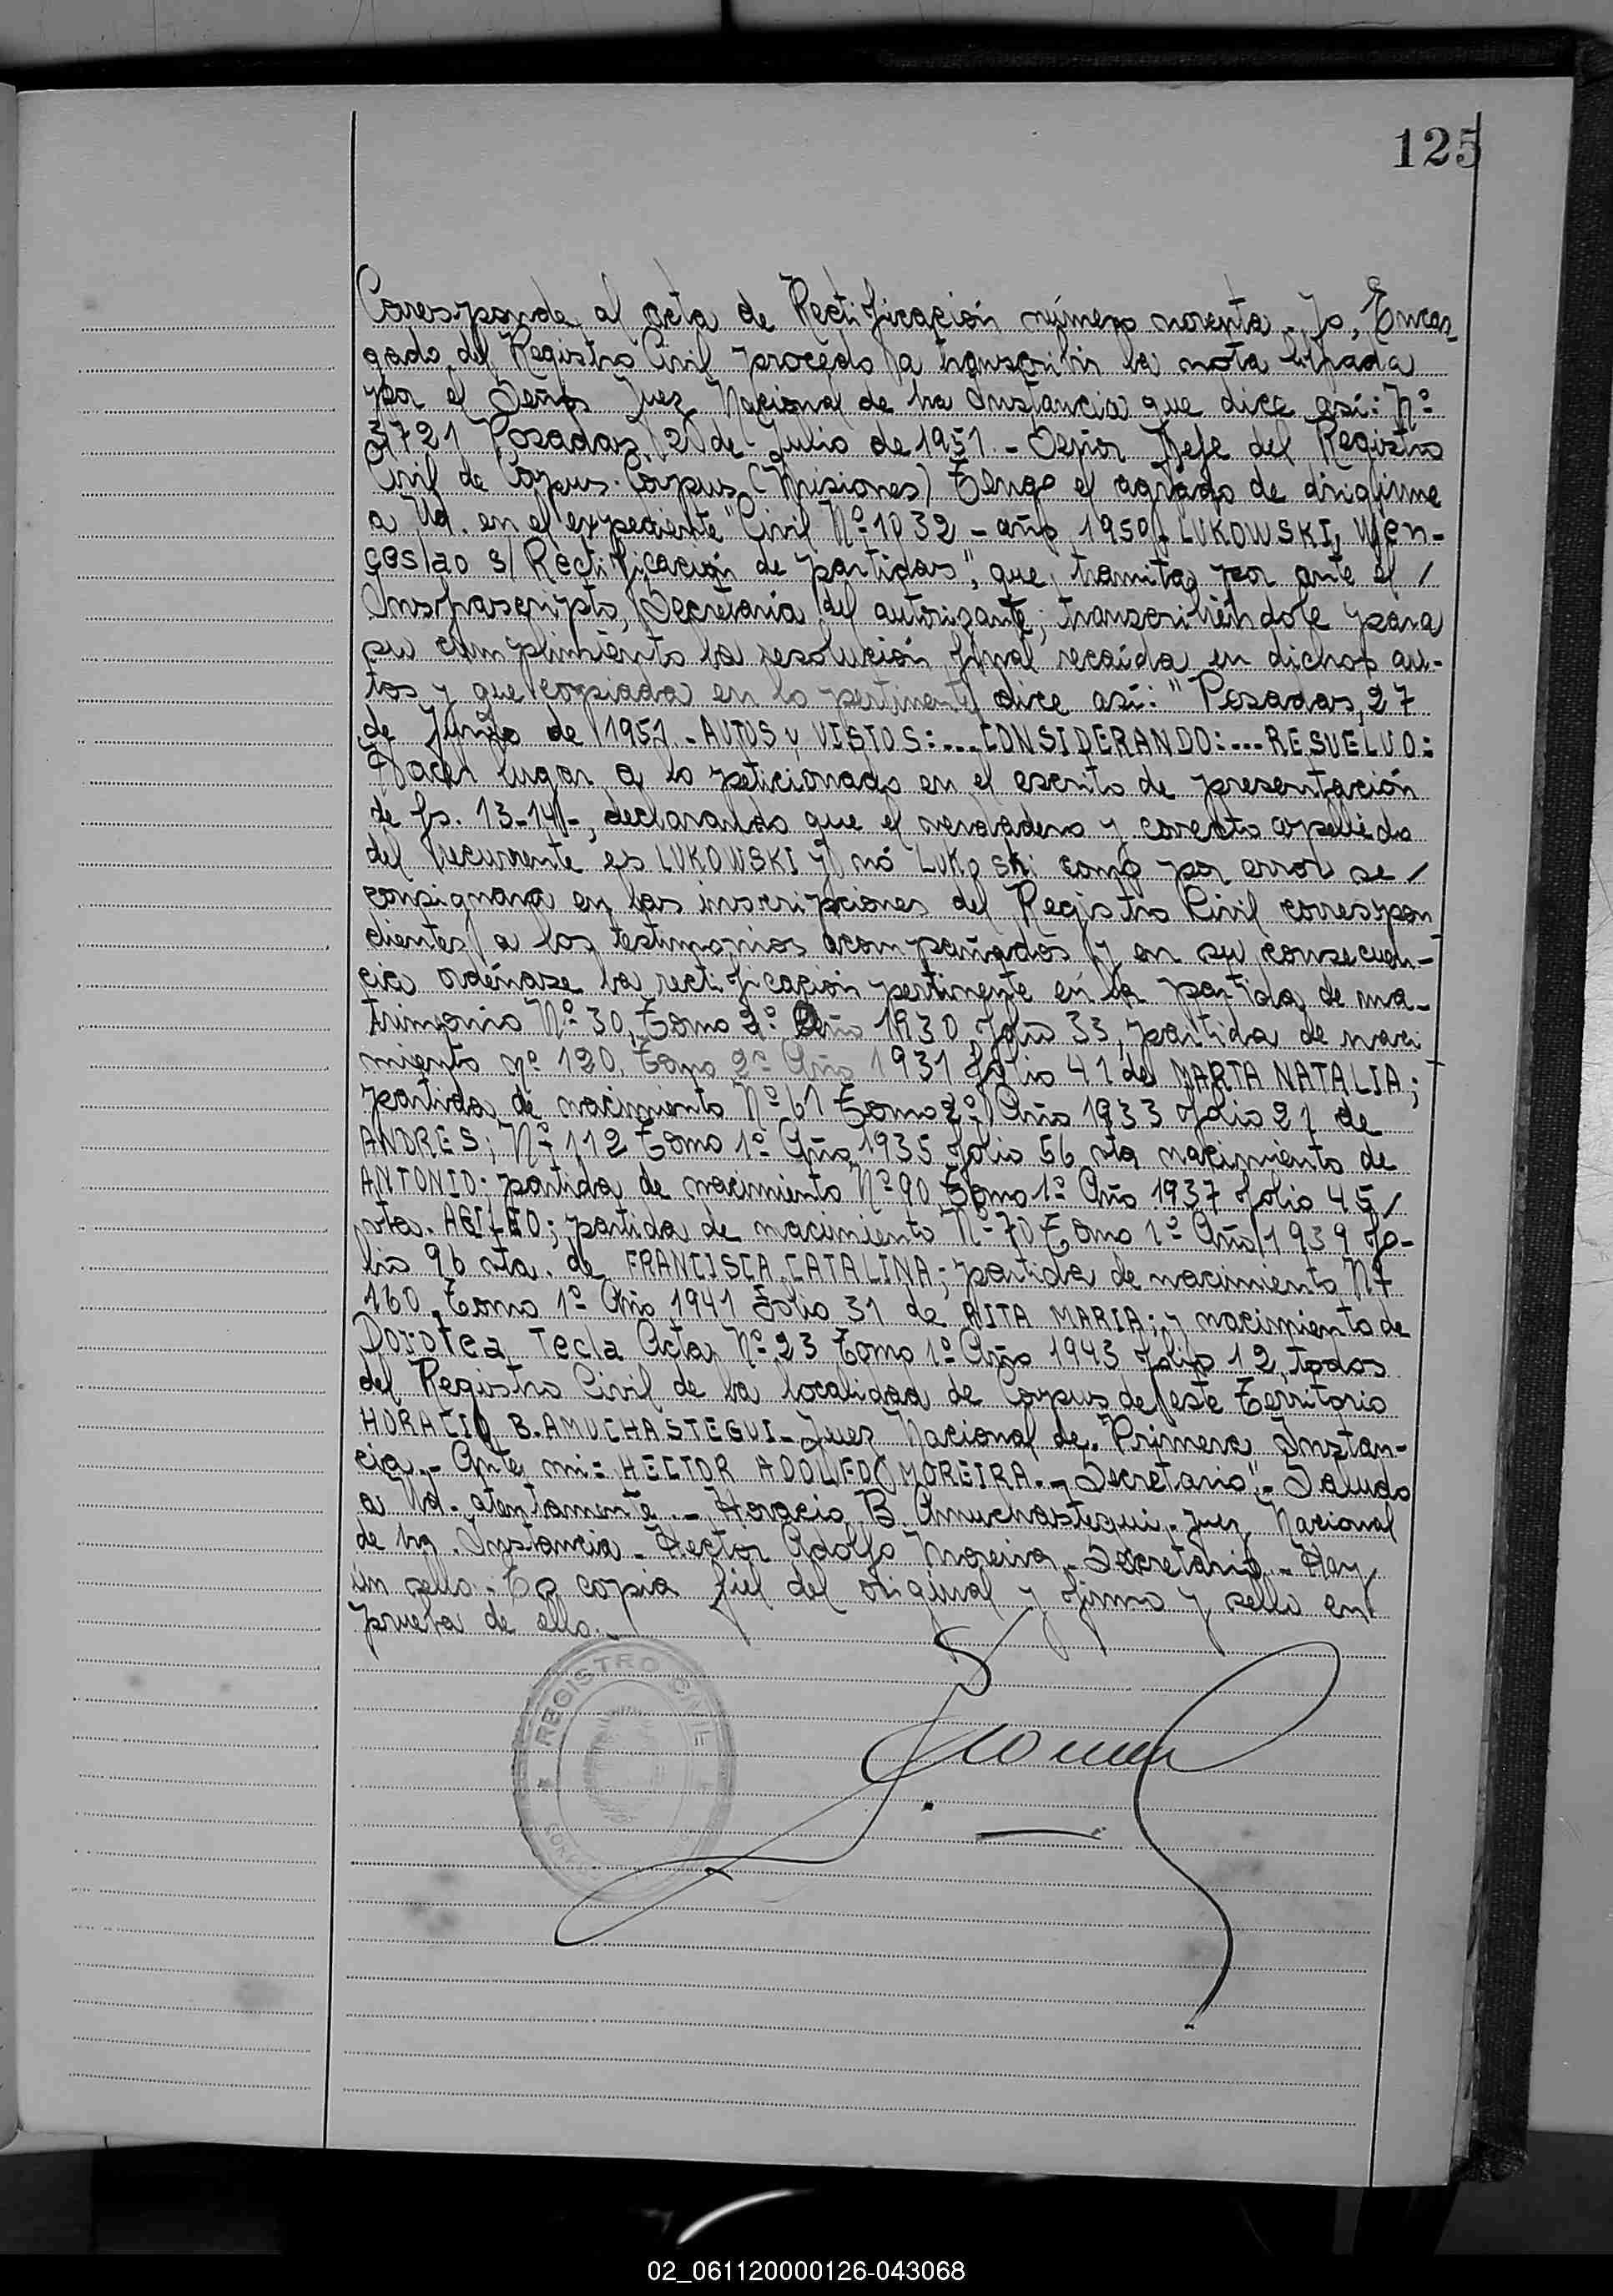 125
Corresponde al acta de Rectificación número noventa. Yo, Encar
gado del Registro Civil procedo a transcribir la nota librada
por el Señor Juez Nacional de 1ra Instancia que dice así: Nº
3721 Posadas, 2 de Julio de 1951.- Señor Jefe del Registro
Civil de Corpus. Corpus (Misiones) Tengo el agrado de dirigirme
a Ud. en el expediente "Civil Nº 1032 - año 1950 - LUKOWSKI, Wen-
ceslao s/ Rectificación de partidas", que tramita por ante el /
Insfrascripto, Secretaria del autorizante, transcribiéndole para
su cumplimiento la resolución final recaída en dichos au-
tos y que copiada en lo pertinente dice así: "Posadas, 27
de Junio de 1951.- AUTOS y VISTOS:...CONSIDERANDO:...RESUELVO:
Hacer lugar a lo peticionado en el escrito de presentación
de fs. 13-14-, declarando que el verdadero y correcto apellido
del recurrente es LUKOWSKI y nó LUKOSKI como por error se /
consignara en las inscripciones del Registro Civil correspon
dientes a los testimonios acompañados y en su consecuen-
cia ordénase la rectificación pertinente en la partida de ma-
trimonio Nº 30, Tomo 2º Año 1930 folio 33, partida de naci
miento nº 120, Tomo 2º Año 1931 folio 41 de MARTA NATALIA;
partida de nacimiento Nº 61 Tomo 2º Año 1933 folio 21 de
ANDRES; Nº 112 Tomo 1º Año 1935 folio 56 vta nacimiento de
ANTONIO; partida de nacimiento Nº 90 Tomo 1º Año 1937 folio 45 /
vta. ; partida de nacimiento Nº 70 Tomo 1º Año 1939 fo-
lio 96 vta. de FRANCISCA CATALINA; partida de nacimiento Nº
160 Tomo 1º Año 1941 Folio 31 de RITA MARIA; y nacimiento de
Dorotea Tecla Acta Nº 23 Tomo 1º Año 1943 folio 12, todos
del Registro Civil de la localidad de Corpus de este Territorio
HORACIO B. AMUCHASTEGUI - Juez Nacional de Primera Instan-
cia.- Ante mi: HECTOR ADOLFO MOREIRA.- Secretario".- Saludo
a Ud. atentamente.- Horacio B. Amuchastegui. Juez Nacional
de 1ra. Instancia - Hector Adolfo Moreira - Secretario - Hay
un sello. Es copia fiel del original y firmo y sello en
prueba de ello.-
REGISTRO CIVIL
02_061120000126-043068